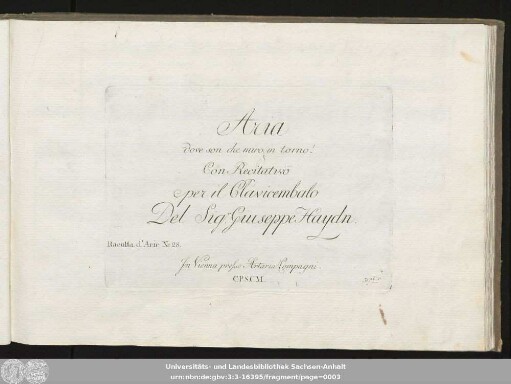 Aria
Dove son che miro in torno?
Con Recitativo
per il Clavicembalo
Del Sigr Giuseppe Haydn.
Racolta d'Arie No 28.
In Vienna presso Artaria Compagni
C.P.S.C.M.
Universitäts- und Landesbibliothek Sachsen-Anhalt
urn:nbn:de:gbv:3:3-16395/fragment/page=0003